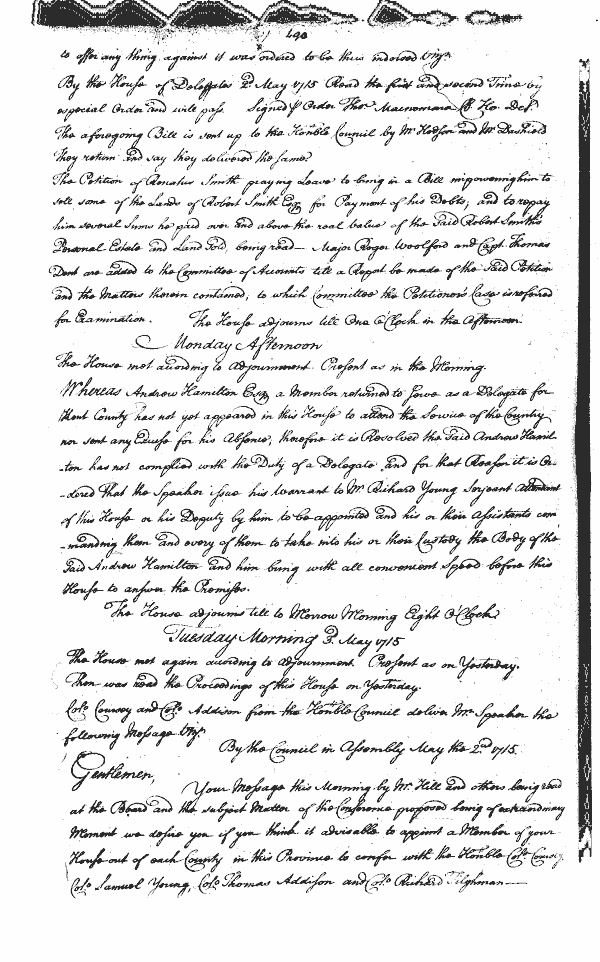 490
to offer any thing against it was ordered to be thus indorsed Vizt.
By the House of Delegates 2d May 1715 Read the first and second Time by
especial Order and will pass. Signed p Order Thos. Macnemara Cl. Ho. Del.
The aforegoing Bill is sent up to the Honble Council by Mr. Hodson and Mr. Dashield
They return and say they delivered the same
The Petition of Renatus Smith praying Leave to bring in a Bill impowering him to
sell some of the Lands of Robert Smith Esqr. for Payment of his Debts, and to repay
him several Sums he paid over and above the real value of the said Robert Smith's
Personal Estate and Land sold, being read— Major Roger Woolford and Capt. Thomas
Dent are added to the Committee of Accounts till a Report be made of the said Petition
and the Matters therein contained, to which Committee the Petitioner's Case is referred
for Examination. The House adjourns till One O'Clock in the Afternoon.
Monday Afternoon
The House met according to Adjournment. Present as in the Morning.
Whereas Andrew Hamilton Esqr. a Member returned to serve as a Delegate for
Kent County has not yet appeared in this House to attend the Service of the Country
nor sent any Excuse for his Absence, therefore it is Resolved the said Andrew Hamil
-ton has not complied with the Duty of a Delegate and for that Reason it is Or-
-dered That the Speaker issue his Warrant to Mr. Richard Young Serjeant Attendant
of this House or his Deputy by him to be appointed and his or their Assistants com
-manding them and every of them to take into his or their Custody the Body of the
said Andrew Hamilton and him bring with all convenient Speed before this
House to answer the Premisses.
The House adjourns till to Morrow Morning Eight O'Clock.
Tuesday Morning 3. May 1715
The House met again according to Adjournment. Present as on Yesterday.
Then was read the Proceedings of this House on Yesterday.
Colo. Coursey and Colo. Addison from the Honble Council deliver Mr. Speaker the
following Message Vizt.
By the Council in Assembly May the 2nd 1715.
Gentlemen,
Your Message this Morning by Mr. Hill and others being read
at the Board and the subject Matter of the Conference proposed being of extraordinary
Moment we desire you if you think it adviseable to appoint a Member of your
House out of each County in this Province to confer with the Honble Colo. Coursey,
Colo. Samuel Young, Colo. Thomas Addison and Colo. Richard Tilghman—